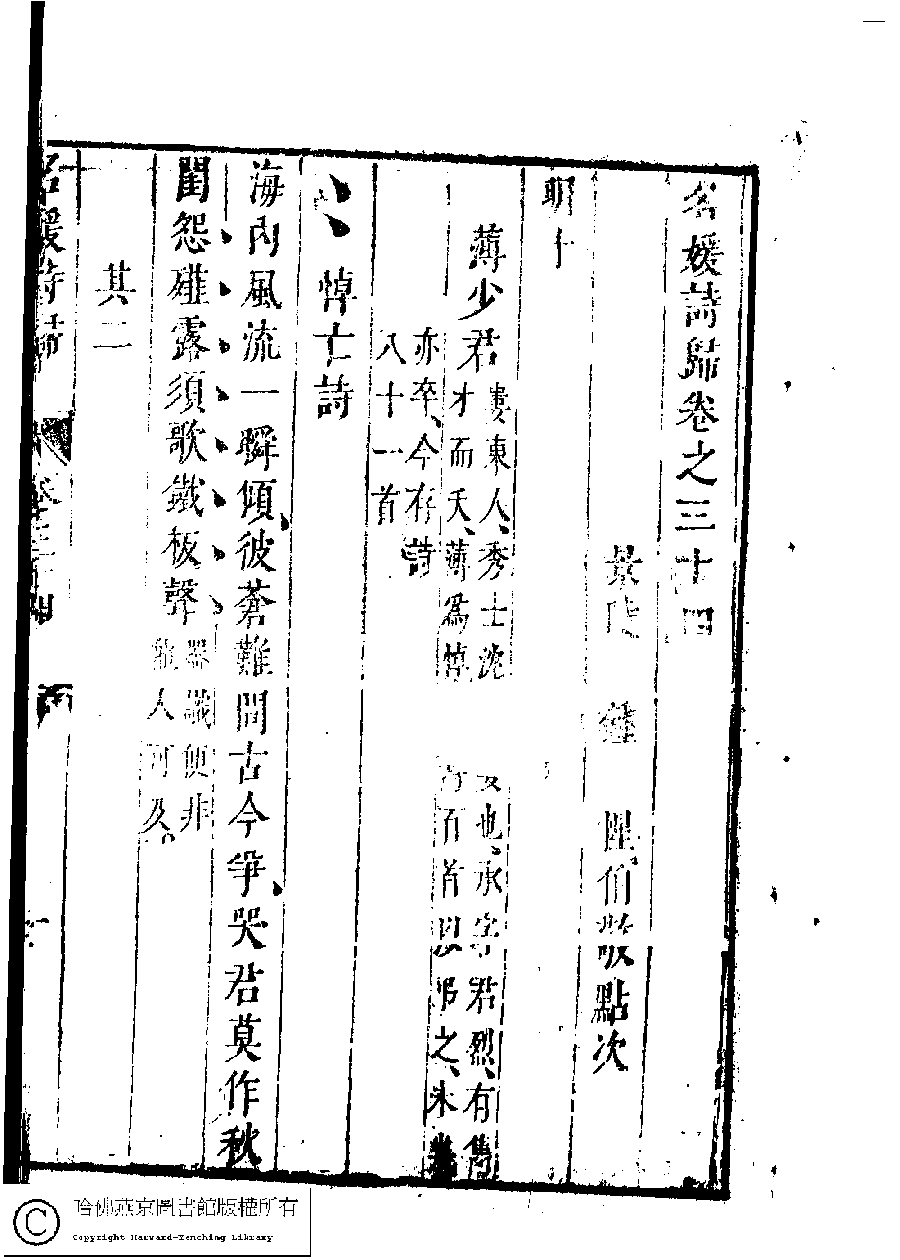 名媛詩歸卷之三十四
景陵 鍾 惺伯敬點次
明十
薄少君婁東人、秀士沈
妻也、承字君烈、有雋
才而夭、薄為悼
詩百首以弔之、未幾
亦卒、今存詩
八十一首
悼亡詩
海內風流一瞬傾、彼蒼難問古今爭、哭君莫作秋
閨怨、薤露須歌鐵板聲
器識便非
人可及。
其二
名媛詩歸
卷三十四
一
哈佛燕京圖書館版權所有
Copyright Harvard-Yenching Library